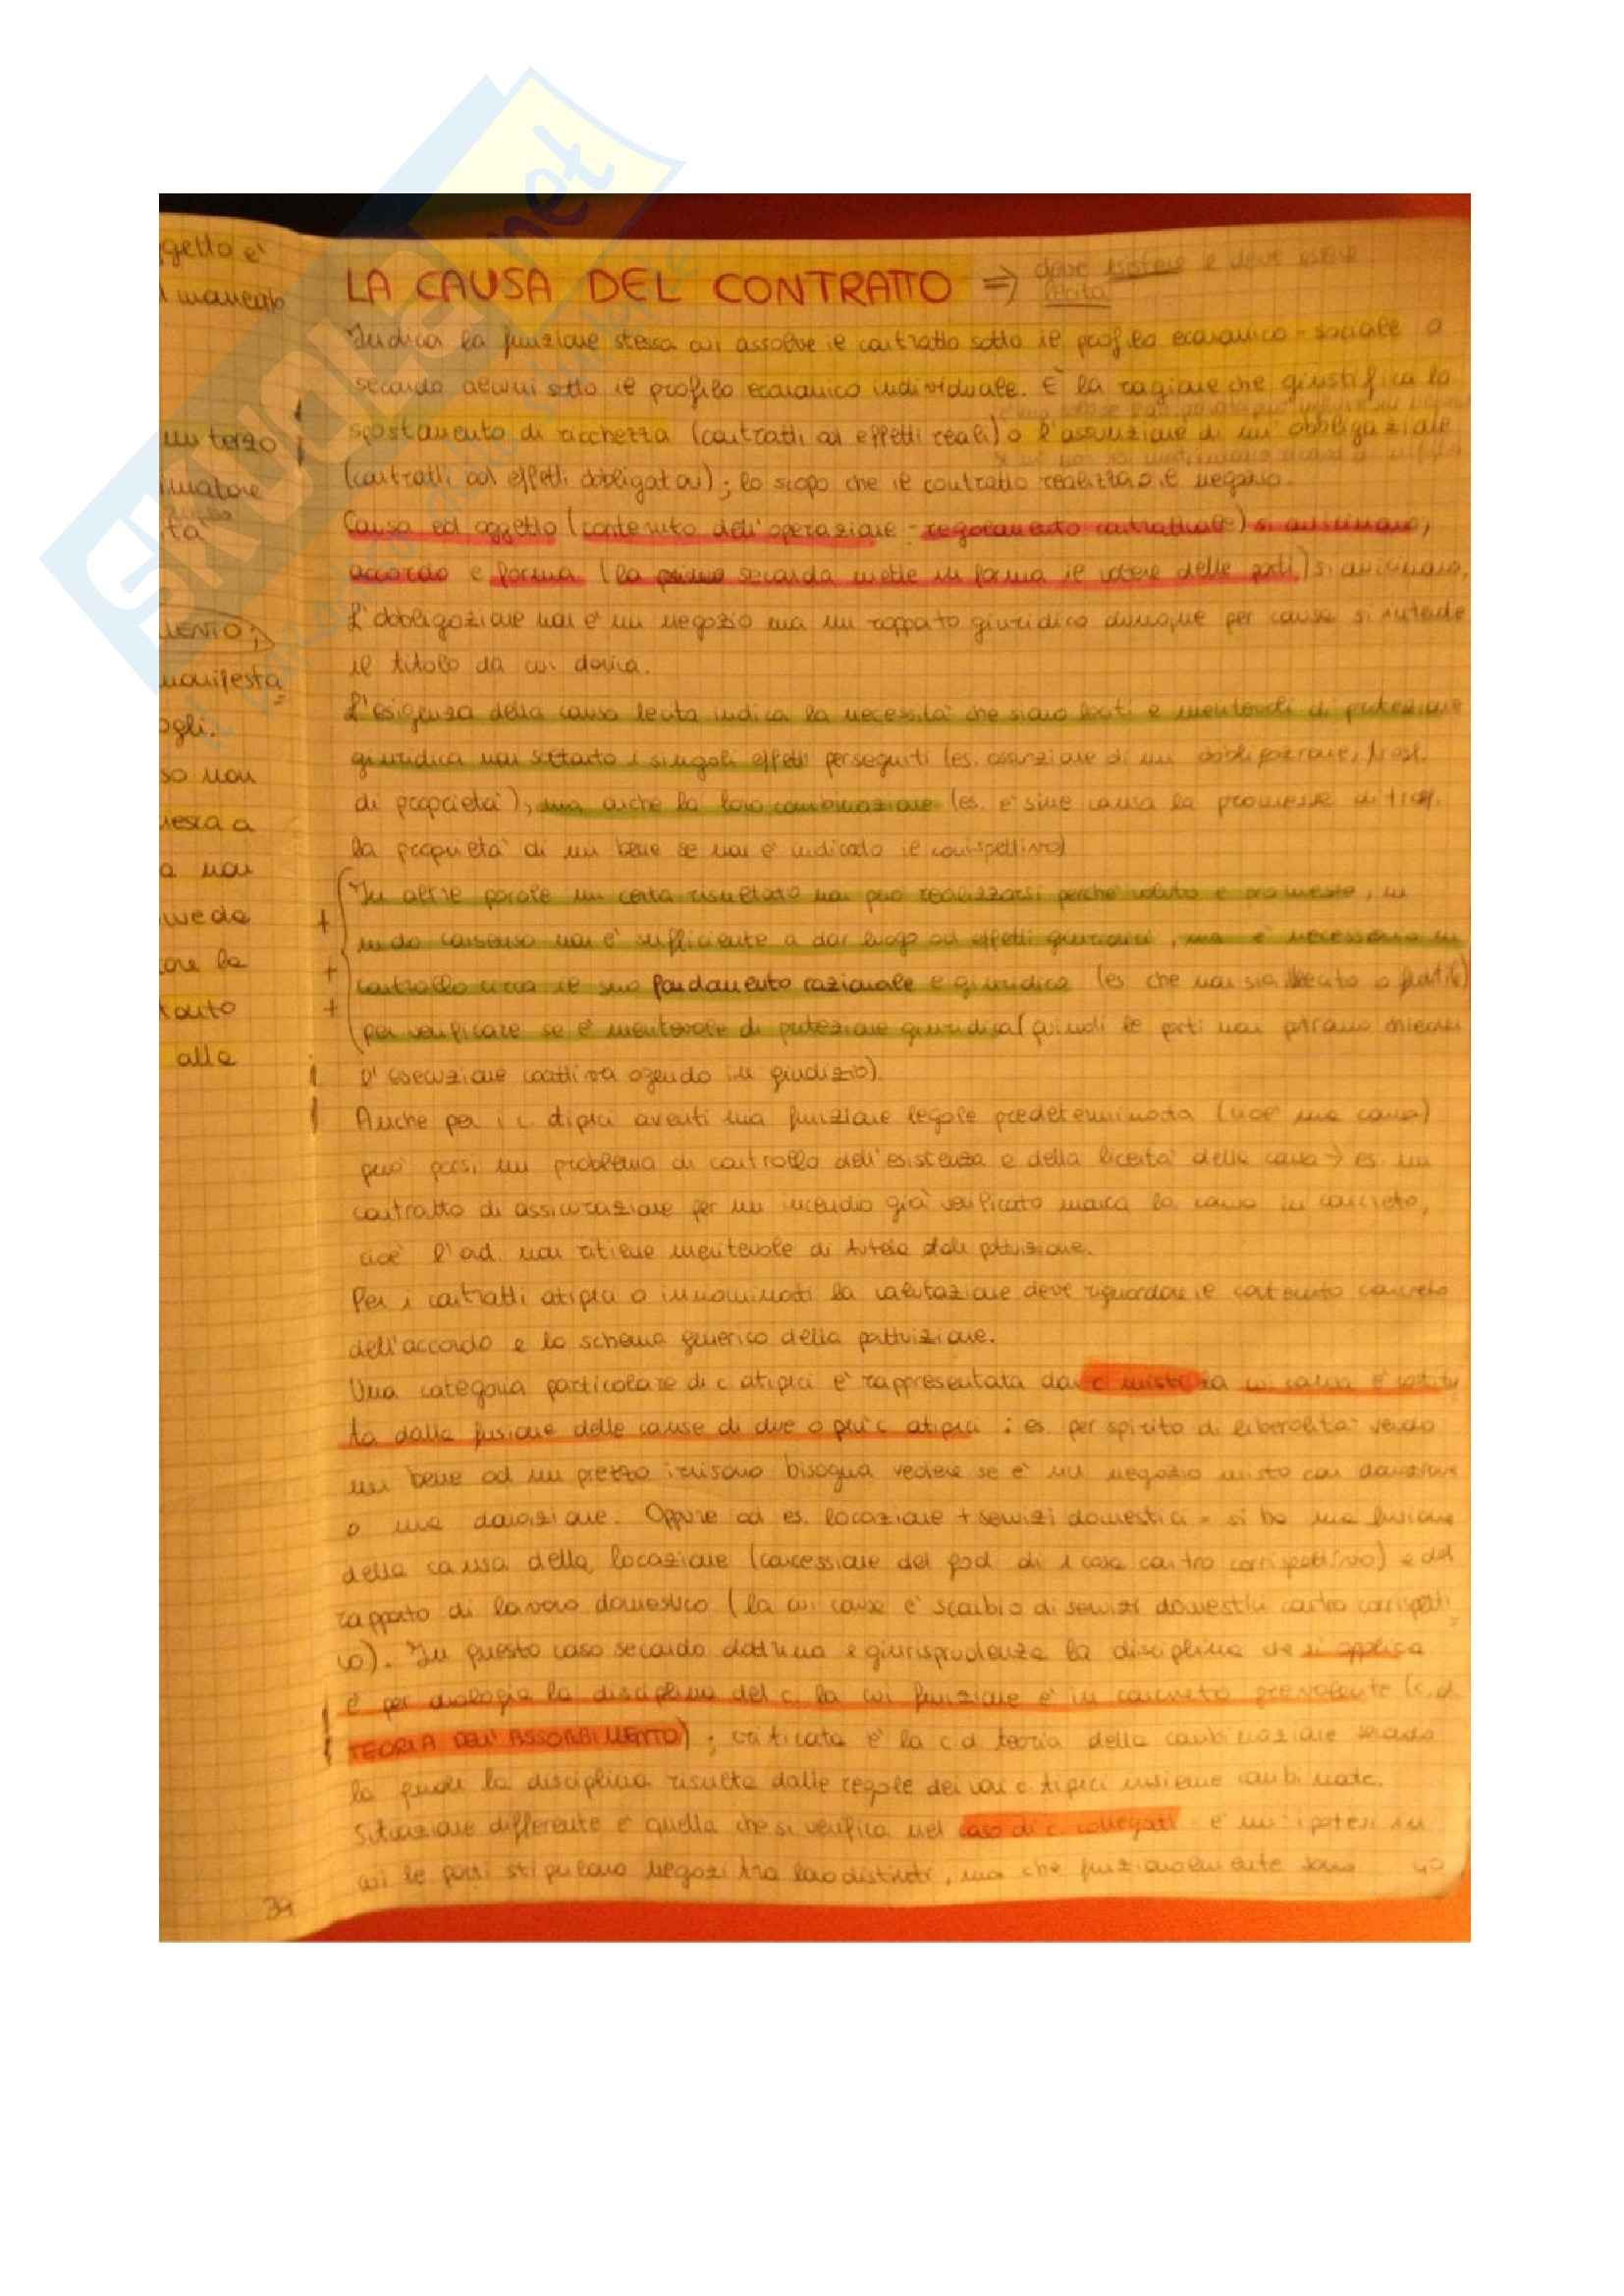 ggetto e'
mancato
un terzo
imatore
ta'
MENTO;
manifesta
ogli.
so non
iesta a
a non
uveda
ore la
tanto
alle
39
LA CAUSA DEL CONTRATTO => deve esistere e deve essere
lecita
Indica la funzione stessa cui assolve il contratto sotto il profilo economico-sociale o
secondo alcuni sotto il profilo economico individuale. È la ragione che giustifica lo
spostamento di ricchezza (contratti ad effetti reali) o l'assunzione di un'obbligazione
(contratti ad effetti obbligatori); lo scopo che il contratto realizza o il negozio.
Causa ed oggetto (contenuto dell'operazione - regolamento contrattuale) si avvicinano;
accordo e forma (la seconda mette in forma il volere delle parti) si avvicinano.
L'obbligazione non è un negozio ma un rapporto giuridico dunque per causa si intende
il titolo da cui deriva.
L'esigenza della causa lecita indica la necessita' che siano leciti e meritevoli di protezione
giuridica non soltanto i singoli effetti perseguiti (es. assunzione di un obbligazione, trasf.
di proprieta'), ma anche la loro combinazione (es. e' sine causa la promessa di trasf.
la proprieta' di un bene se non e' indicato il corrispettivo)
In altre parole un certo risultato non può realizzarsi perché voluto e promesso, un
nudo consenso non e' sufficiente a dar luogo ad effetti giuridici, ma e' necessario un
+ controllo circa il suo fondamento razionale e giuridico (es che non sia illecito o futile)
+ per verificare se è meritevole di protezione giuridica (quindi le parti non potranno chiedere
+ l'esecuzione coattiva agendo in giudizio).
Anche per i c. tipici aventi una funzione legale predeterminata (cioe' una causa)
puo' porsi un problema di controllo dell'esistenza e della liceita' della causa → es. un
contratto di assicurazione per un incendio già verificato manca la causa in concreto,
cioe' l'ord. non ritiene meritevole di tutela tale pattuizione.
Per i contratti atipici o innominati la valutazione deve riguardare il contenuto concreto
dell'accordo e lo schema generico della pattuizione.
Una categoria particolare di c atipici e' rappresentata dai c misti la cui causa è costitui
ta dalla fusione delle cause di due o più c atipici : es. per spirito di liberalita' vendo
un bene ad un prezzo irrisorio bisogna vedere se e' un negozio misto con donazione
o una donazione. Oppure ad es. locazione + servizi domestici = si ha una fusione
della causa della locazione (concessione del god. di 1 cosa contro corrispettivo) e del
rapporto di lavoro domestico (la cui causa e' scambio di servizi domestici contro corrispetti
vo). In questo caso secondo dottrina e giurisprudenza la disciplina che si applica
è per analogia la disciplina del c. la cui funzione e' in concreto prevalente (c.d.
TEORIA DELL'ASSORBIMENTO) ; criticata e' la c.d. teoria della combinazione secondo
la quale la disciplina risulta dalle regole dei vari c. tipici insieme combinate.
Situazione differente e' quella che si verifica nel caso di c. collegati e' un'ipotesi in
cui le parti stipulano negozi tra loro distinti, ma che funzionalmente sono
40